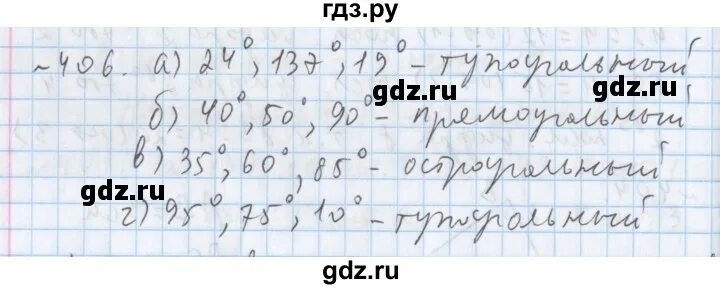 гдз.ру
~406. а) 24°, 137°, 19° - тупоугольный
gdz.ru gdz.ru
б) 40°, 50°, 90° - прямоугольный
в) 35°, 60°, 85° - остроугольный
gdz.ru gdz.ru
г) 95°, 75°, 10° - тупоугольный
gdz.ru